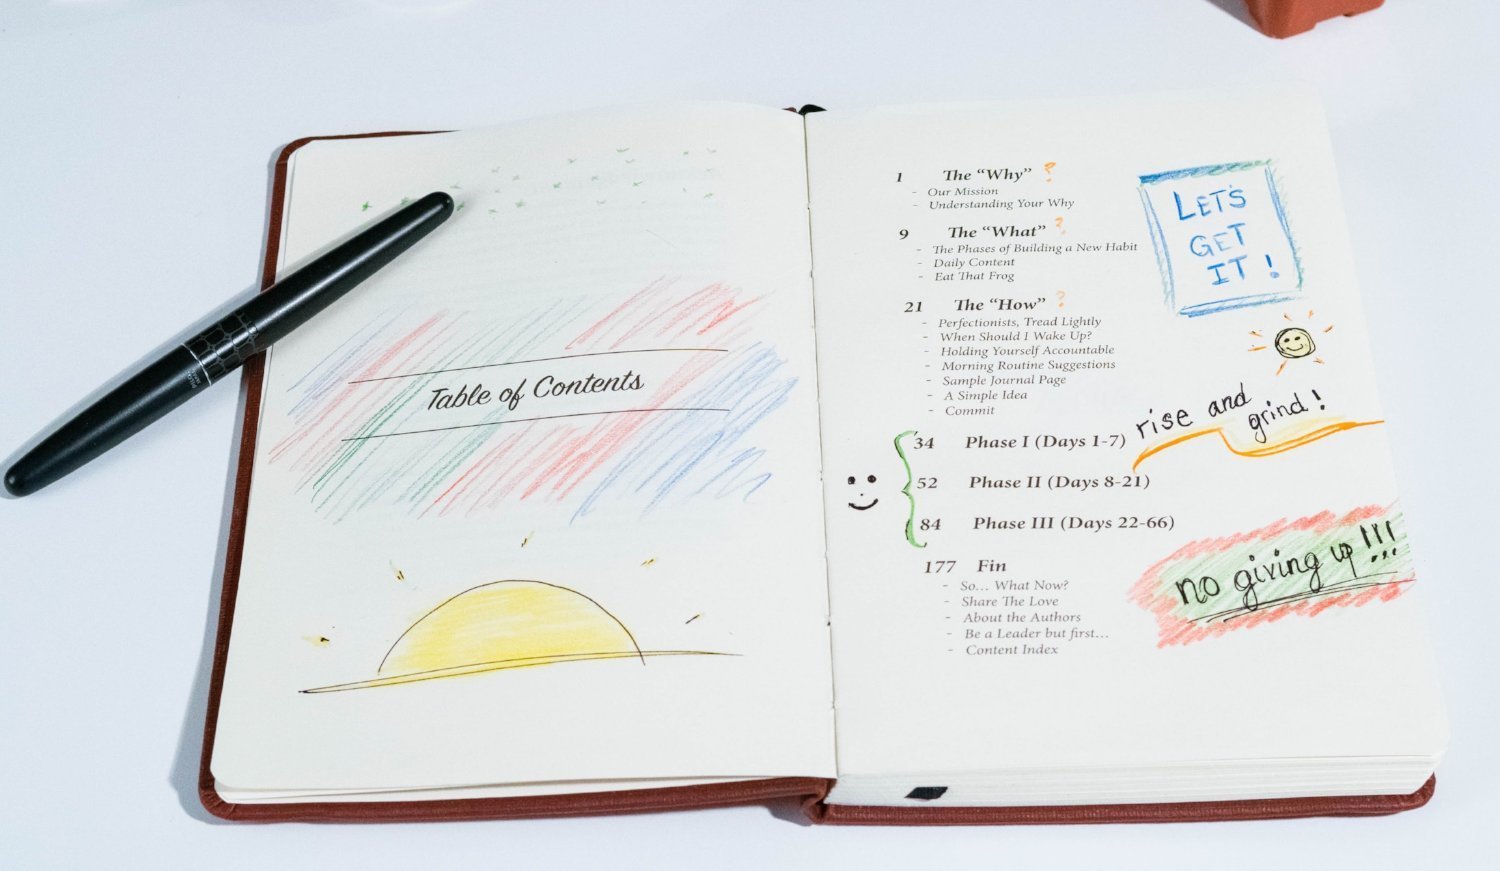 Table of Contents
1 The “Why” ?
- Our Mission
- Understanding Your Why
9 The “What” ?
- The Phases of Building a New Habit
- Daily Content
- Eat That Frog
21 The “How” ?
- Perfectionists, Tread Lightly
- When Should I Wake Up?
- Holding Yourself Accountable
- Morning Routine Suggestions
- Sample Journal Page
- A Simple Idea
- Commit
34 Phase I (Days 1-7)
52 Phase II (Days 8-21)
84 Phase III (Days 22-66)
177 Fin
- So... What Now?
- Share The Love
- About the Authors
- Be a Leader but first...
- Content Index
LET'S
GET
IT!
rise and
grind!
no giving up!!!